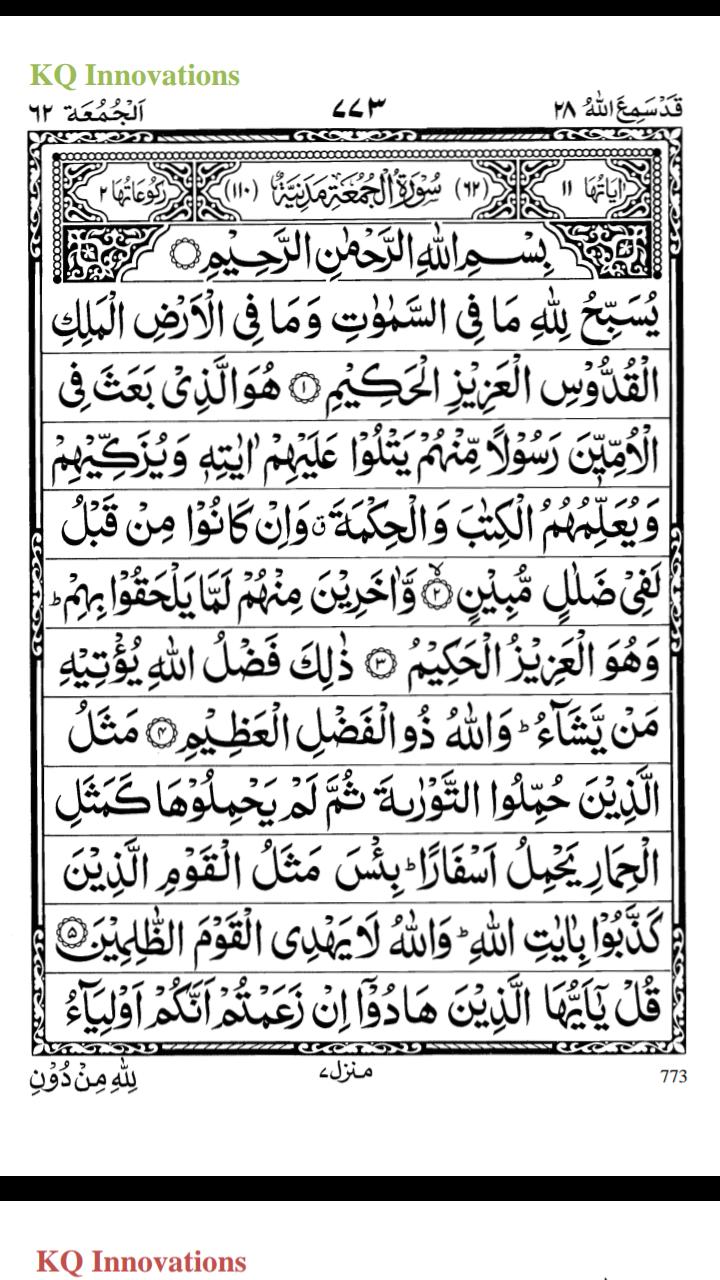 KQ Innovations
قَدْسَمِعَ اللهُ ٢٨ ٧٧٣ اَلْجُمُعَة ٦٢
اٰيَاتُهَا ١١ (٦٢) سُوْرَةُ الْجُمُعَةِ مَدَنِيَّةٌ (١١٠) رُكُوْعَاتُهَا ٢
بِسْمِ اللهِ الرَّحْمٰنِ الرَّحِيْمِ
يُسَبِّحُ لِلّٰهِ مَا فِى السَّمٰوٰتِ وَمَا فِى الْاَرْضِ الْمَلِكِ
الْقُدُّوْسِ الْعَزِيْزِ الْحَكِيْمِ ۝١ هُوَ الَّذِىْ بَعَثَ فِى
الْاُمِّيّٖنَ رَسُوْلًا مِّنْهُمْ يَتْلُوْا عَلَيْهِمْ اٰيٰتِهٖ وَيُزَكِّيْهِمْ
وَيُعَلِّمُهُمُ الْكِتٰبَ وَالْحِكْمَةَ ۗ وَاِنْ كَانُوْا مِنْ قَبْلُ
لَفِىْ ضَلٰلٍ مُّبِيْنٍ ۝٢ وَّاٰخَرِيْنَ مِنْهُمْ لَمَّا يَلْحَقُوْا بِهِمْ ؕ
وَهُوَ الْعَزِيْزُ الْحَكِيْمُ ۝٣ ذٰلِكَ فَضْلُ اللهِ يُؤْتِيْهِ
مَنْ يَّشَآءُ ؕ وَاللهُ ذُو الْفَضْلِ الْعَظِيْمِ ۝٤ مَثَلُ
الَّذِيْنَ حُمِّلُوا التَّوْرٰىةَ ثُمَّ لَمْ يَحْمِلُوْهَا كَمَثَلِ
الْحِمَارِ يَحْمِلُ اَسْفَارًا ؕ بِئْسَ مَثَلُ الْقَوْمِ الَّذِيْنَ
كَذَّبُوْا بِاٰيٰتِ اللهِ ؕ وَاللهُ لَا يَهْدِى الْقَوْمَ الظّٰلِمِيْنَ ۝٥
قُلْ يٰۤاَيُّهَا الَّذِيْنَ هَادُوْۤا اِنْ زَعَمْتُمْ اَنَّكُمْ اَوْلِيَآءُ
773 منزل٧ لِلّٰهِ مِنْ دُوْنِ
KQ Innovations